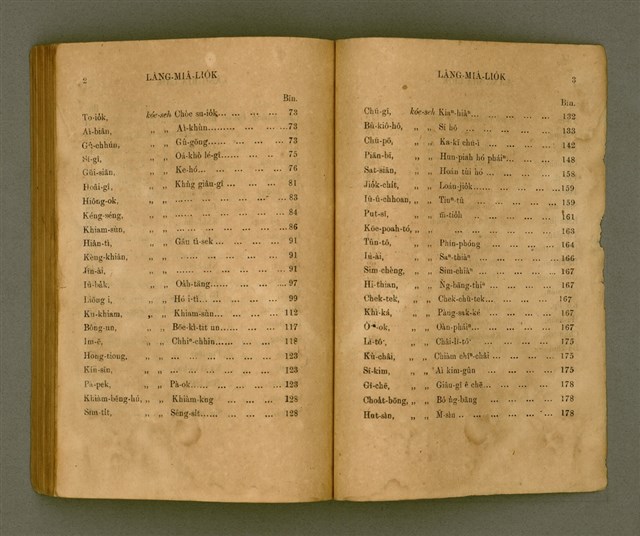 2 LÂNG-MIÂ-LIÓK
Bīn.
To-io̍k, kóe-seh Chòe su-io̍k... ... ... ... 73
Ai-biân, ,, ,, Aì-khùn......... ... ... 73
Gû-chhún, ,, ,, Gû-gōng...... ... ... ... 73
Si-gí, ,, ,, Oá-khò lé-gī...... ... ... 75
Gūi-siān, ,, ,, Ke-hó... ... ... ... ... 76
Hoâi-gî, ,, ,, Khńg giâu-gî ... ... ... 81
Hiông-ok, ,, ,, ... ... ... ... ... ... 83
Kéng-séng, ,, ,, ... ... ... ... ... 84
Khiam-sùn, ,, ,, ... ... ... ... ...86
Hiân-tì, ,, ,, Gâu tì-sek ... ... ... 91
Kèng-khiân, ,, ,, ... ... ... ... ... 91
Jîn-ài, ,, ,, ... ... ... ... ... 91
Iû-ba̍k, ,, ,, Oa̍h-tāng...... ... ...97
Liông i, ,, ,, Hó ì-tì... ... ... ... 99
Ku-khiam, ,, ,, Khiam-sún... ... ... ... 112
Bông-un, ,, ,, Bōe-kì-tit un... ... ... 117
Im-ē, ,, ,, Chhiⁿ-chhin...... ... ... 118
Hong-tiong, ,, ,, ... ... ... ... ... 123
Kiò-sìn, ,, ,, ... ... ... ... ... 123
Pà-pek, ,, ,, Pà-ok... ... ... ... ...123
Khiàm-bêng-hú, ,, ,, Khiàm-kng ... ... ... 128
Sūn-tit, ,, ,, Séng-sit...... ... ... ... 128
LÂNG-MIÂ-LIÓK 3
Bīn.
Chū-gī, kóe-seh Kiaⁿ-hiâⁿ... ... ... ... 132
Bû-kiò-hô, ,, ,, Sí hô ... ... ... ... 133
Chū-pó, ,, ,, Ka-kī chū-ì ... ... ... 142
Piān-bí, ,, ,, Hun-piah hó pháiⁿ... ... 148
Sat-siān, ,, ,, Hoán tùi hó ... ... ... 158
Jio̍k-chit, ,, ,, Loán-jio̍k... ... ... ...159
Iù-ū-chhoan, ,, ,, Tīnⁿ-tū ... ... ... 159
Put-sī, ,, ,, m̄-tio̍h ... ... ... ... 161
Kòe-poah-tó, ,, ,, ... ... ... ... ... 163
Tūn-tô, ,, ,, Phin-phóng ... ... ... 164
In-ài, ,, ,, Saⁿ-thiàⁿ... ... ... ... 166
Sim-chèng, ,, ,, Sim-chîaⁿ ... ... ... 167
Hi-thian, ,, ,, Ǹg-bāng-thiⁿ ... ... ... 167
Chek-tek, ,, ,, Chek-chū-tek... ... ... 167
Khì-ká, ,, ,, Pàng-sak-ké ... ... ... 167
,, ,, Oàn-pháiⁿ... ... ... ... 167
Lé-tō͘, ,, ,, Châi-lí-tō͘ ... ... ... 175
Kù-châi, ,, ,, Chiàm chîⁿ-châi ... ... 175
Si-kim, ,, ,, Ai kim-gûn ... ... ... 175
Gī-chē, ,, ,, Giâu-gî ê chē... ... ... 178
Choa̍t-bōng, ,, ,, Bô ǹg-bāng ... ... ... 178
Hut-sìn, ,, ,, M̄-sìn ... ... ... ... 178